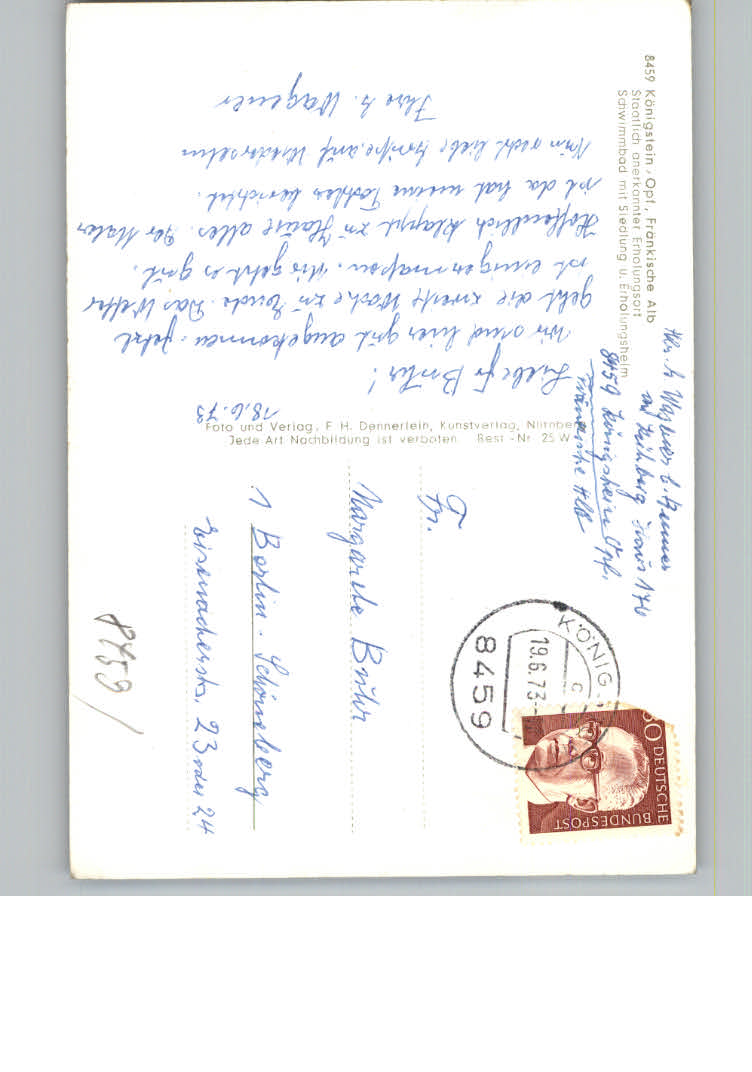 8459 Königstein, Opf., Fränkische Alb
Staatlich anerkannter Erholungsort
Schwimmbad mit Siedlung u. Erholungsheim
Abs. A. Wagener b.
Haus 170
8459 Königstein Opf.
Fränkische Alb
18.6.73
Liebe Fr Buhr!
Wir sind hier gut angekommen. Jetzt
geht die zweite Woche zu Ende. Das Wetter
ist einigermaßen. Mir geht es gut.
Hoffentlich klappt zu Hause alles. Der Maler
ist da hat meine Tochter berichtet.
Nun recht liebe Grüße auf Wiedersehn
Ihre A. Wagener
Foto und Verlag, F. H. Dennerlein, Kunstverlag, Nürnberg
Jede Art Nachbildung ist verboten. Best.-Nr. 25 W
Fr.
Margarete Buhr
1 Berlin-Schöneberg
Eisenacherstr. 23 oder 24
8459
KÖNIG
19.6.73
c
8459
30 DEUTSCHE
BUNDESPOST